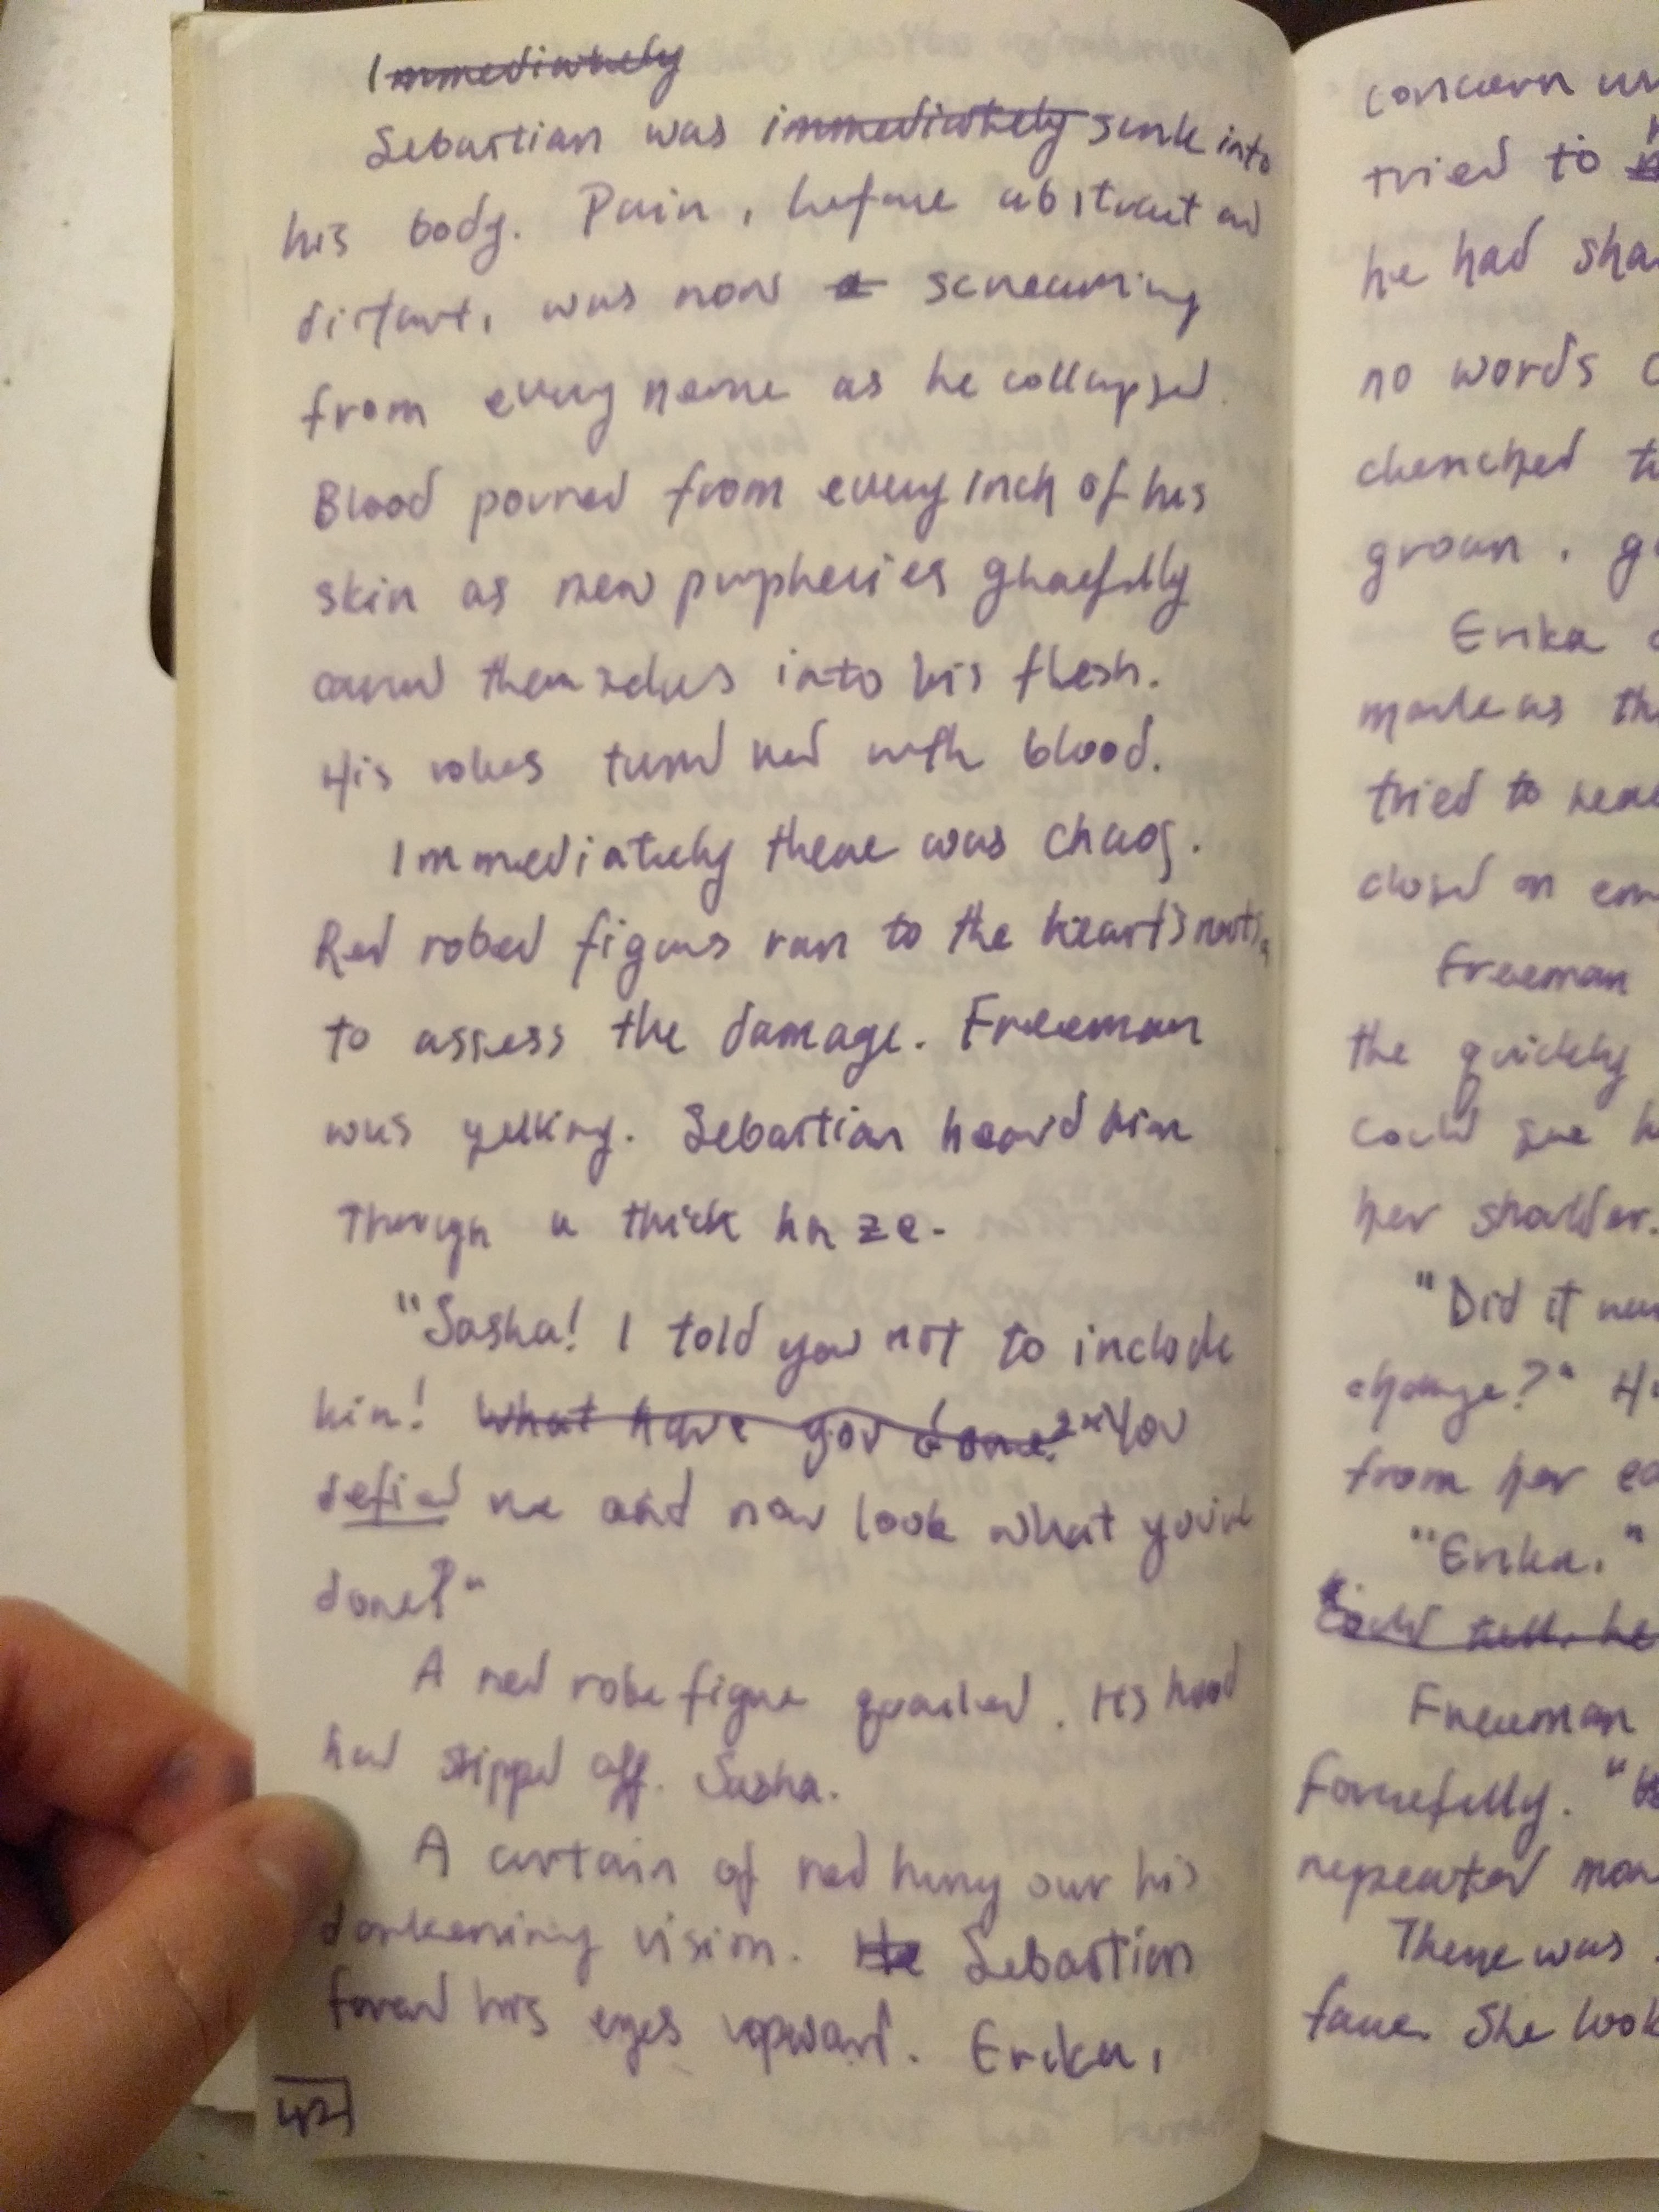 Immediately
Sebastian was immediately sunk into
his body. Pain, before abstract and
distant, was now a screaming
from every nerve as he collapsed.
Blood poured from every inch of his
skin as new prophecies gleefully
carved themselves into his flesh.
His robes turned red with blood.
Immediately there was chaos.
Red robed figures ran to the heart's roots,
to assess the damage. Freeman
was yelling. Sebastian heard him
Through a thick haze.
"Sasha! I told you not to include
him! What have you done?" You
defied me and now look what you've
done?"
A red robe figure quailed. His hood
had slipped off. Sasha.
A curtain of red hung over his
darkening vision. He Sebastian
forced his eyes upward. Erika,
42
concern
tried to
he had
no words
clenched
groan.
Erika
made as
tried to
closed on
Freeman
the quickly
could see
her shoulder.
"Did it
change?"
from her
"Erika."
could tell he
Freeman
Forcefully.
repeated
There was
face. She